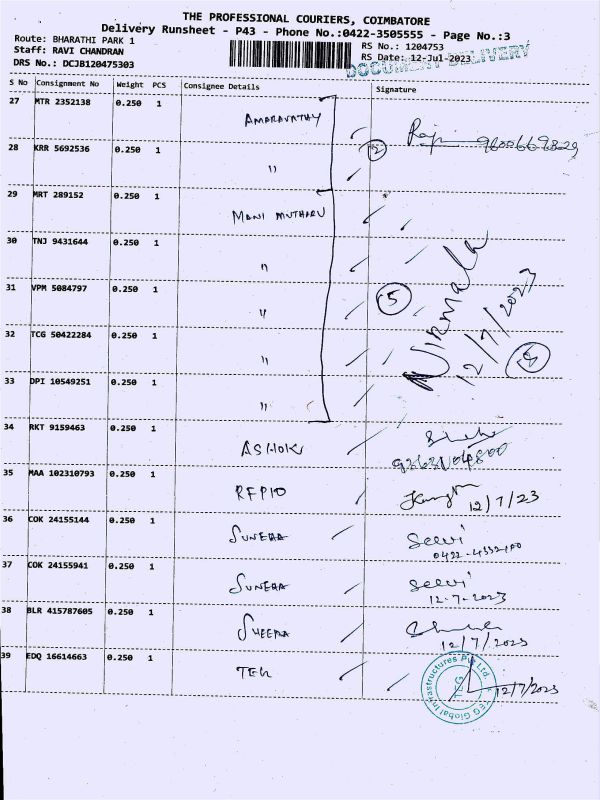 THE PROFESSIONAL COURIERS, COIMBATORE
Delivery Runsheet - P43 - Phone No.:0422-3505555 - Page No.:3
Route: BHARATHI PARK 1
RS No.: 1204753
Staff: RAVI CHANDRAN
RS Date: 12-Jul-2023
DRS No.: DCJB120475303
DOCUMENT DELIVERY
S No Consignment No Weight PCS Consignee Details Signature
27 MTR 2352138 0.250 1 AMARAVATHY
28 KRR 5692536 0.250 1 " 2 Raji
29 MRT 289152 0.250 1 MANI MUTHARU
30 TNJ 9431644 0.250 1 "
31 VPM 5084797 0.250 1 " 5 Nirmala 12/7/2023
32 TCG 50422284 0.250 1 "
33 DPI 10549251 0.250 1 "
34 RKT 9159463 0.250 1 ASHOK
35 MAA 102310793 0.250 1 12/7/23
36 COK 24155144 0.250 1 SUNERA Selvi
37 COK 24155941 0.250 1 SUNERA Selvi
12-7-2023
38 BLR 415787605 0.250 1 SHEELA
12/7/2023
39 EDQ 16614663 0.250 1 TEG 12/7/2023
TEG Global Infrastructures Pvt Ltd.
TEG